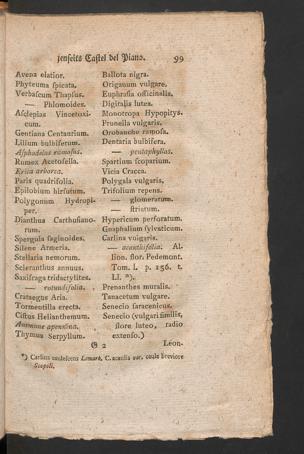 jenseits Castel del Piano. 99
Avena elatior.
Phyteuma spicata.
Verbascum Thapsus.
— Phlomoides.
Asclepias Vincetoxi-
cum.
Gentiana Centaurium.
Lilium bulbiferum.
Asphodelus ramosus.
Rumex Acetosella.
Erica arborea.
Paris quadrifolia.
Epilobium hirsutum.
Polygonum Hydropi-
per.
Dianthus Carthusiano-
rum.
Spergula saginoides.
Silene Armeria.
Stellaria nemorum.
Scleranthus annuus.
Saxifraga tridactylites.
— rotundifolia.
Crataegus Aria.
Tormentilla erecta.
Cistus Helianthemum.
Anemone apennina.
Thymus Serpyllum.
Ballota nigra.
Origanum vulgare.
Euphrasia officinalis.
Digitalis lutea.
Monotropa Hypopitys.
Prunella vulgaris.
Orobanche ramosa.
Dentaria bulbifera.
— pentaphyllos.
Spartium scoparium.
Vicia Cracca.
Polygala vulgaris.
Trifolium repens.
— glomeratum.
— striatum.
Hypericum perforatum.
Gnaphalium sylvaticum.
Carlina vulgaris.
— acanthifolia: Al-
lion. flor. Pedemont.
Tom. I. p. 156. t.
LI. *).
Prenanthes muralis.
Tanacetum vulgare.
Senecio saracenicus.
Senecio (vulgari similis,
flore luteo, radio
extenso.)
G 2 Leon-
*) Carlina Lamark, C. acaulis var. caule breviore
Scopoli.